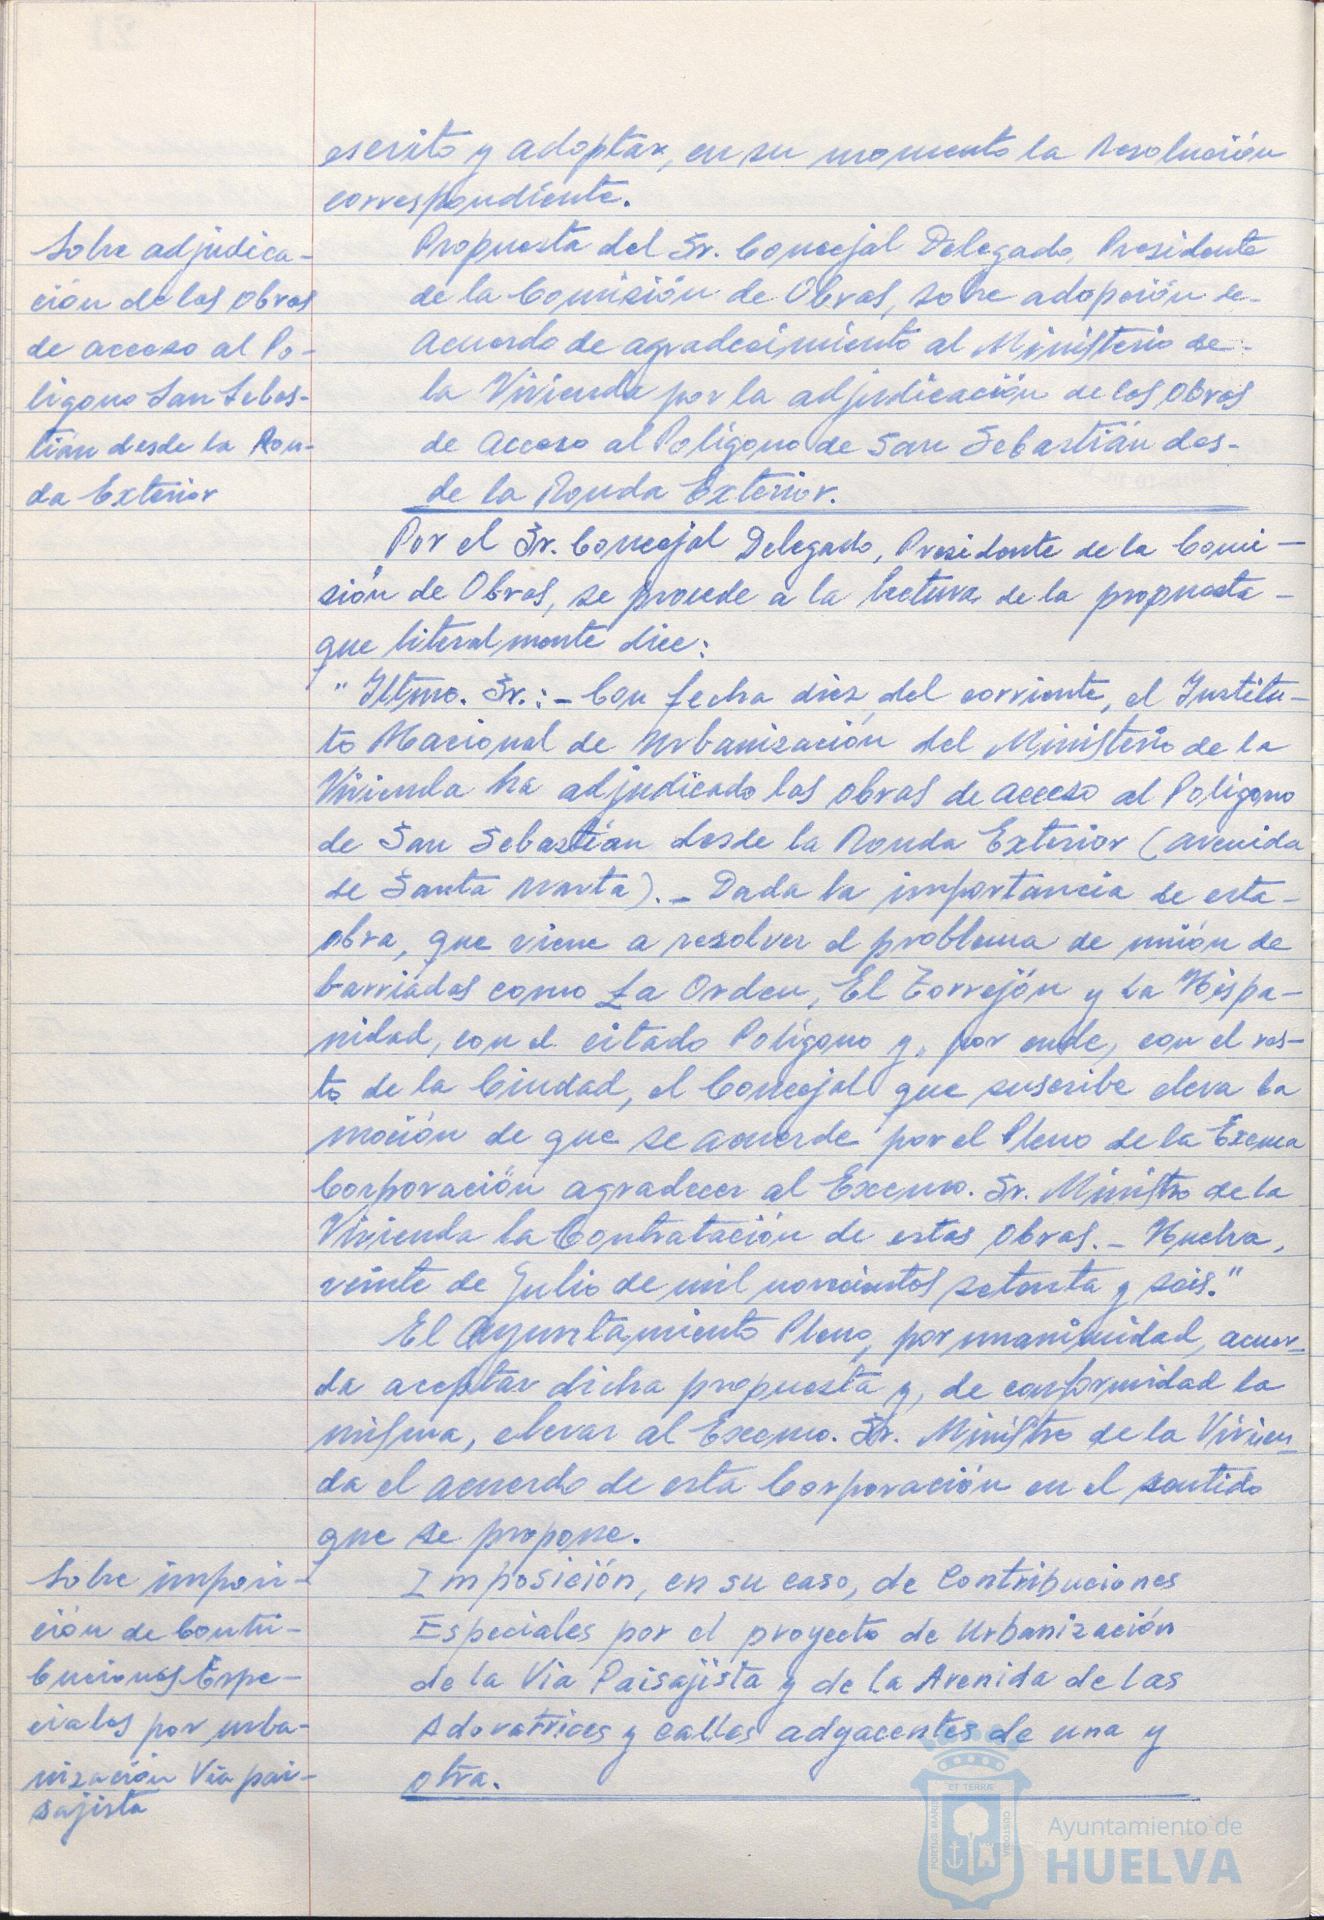 escrito y adoptar, en su momento la Resolución
correspondiente.
Sobre adjudica-
ción de las Obras
de acceso al Po-
lígono San Sebas-
tián desde la Ron-
da Exterior
Propuesta del Sr. Concejal Delegado, Presidente
de la Comisión de Obras, sobre adopción de
Acuerdo de agradecimiento al Ministerio de
la Vivienda por la adjudicación de las Obras
de Acceso al Polígono de San Sebastián des-
de la Ronda Exterior.
Por el Sr. Concejal Delegado, Presidente de la Comi-
sión de Obras, se procede a la lectura de la propuesta
que literalmente dice:
"Iltmo. Sr.: - Con fecha diez del corriente, el Institu-
to Nacional de Urbanización del Ministerio de la
Vivienda ha adjudicado las obras de acceso al Polígono
de San Sebastián desde la Ronda Exterior (avenida
de Santa Marta). - Dada la importancia de esta
obra, que viene a resolver el problema de unión de
barriadas como La Orden, El Torrejón y La Hispa-
nidad, con el citado Polígono y, por ende, con el res-
to de la Ciudad, el Concejal que suscribe eleva la
moción de que se acuerde por el Pleno de la Excma
Corporación agradecer al Excmo. Sr. Ministro de la
Vivienda la Contratación de estas Obras. - Huelva,
veinte de Julio de mil novecientos setenta y seis."
El Ayuntamiento Pleno, por unanimidad, acuer-
da aceptar dicha propuesta y, de conformidad la
misma, elevar al Excmo. Sr. Ministro de la Vivien-
da el acuerdo de esta Corporación en el sentido
que se propone.
Sobre imposi-
ción de Contri-
buciones Espe-
ciales por urba-
nización Vía pai-
sajista
Imposición, en su caso, de Contribuciones
Especiales por el proyecto de Urbanización
de la Vía Paisajista y de la Avenida de las
Adoratrices y calles adyacentes de una y
otra.
PORTUS MARIS
ET TERRÆ
CUSTODIA
Ayuntamiento de
HUELVA